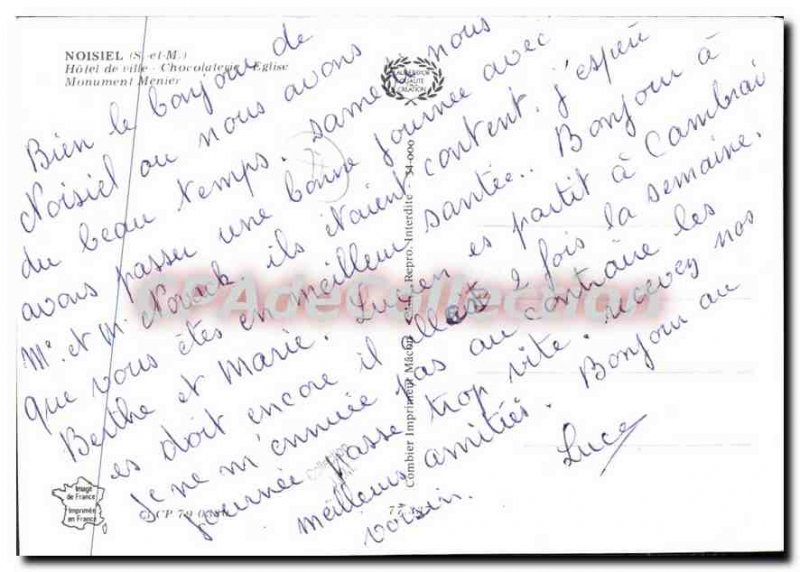 NOISIEL (S.-et-M.)
Hôtel de ville - Chocolaterie - Eglise
Monument Menier
Bien le bonjour de
Noisiel ou nous avons
du beau temps. samedi nous
avons passer une bonne journée avec
Mr. et M. Novack. ils étaient content. j'espère
que vous êtes en meilleur santée.. Bonjour à
Berthe et Marie. Lucien es partit à Cambrai
es doit encore il 2 fois la semaine.
Je ne m'ennuie pas au contraire les
journée passe trop vite. recevez nos
meilleurs amitiés. Bonjour au
voisin. Luce
Combier Imprimeur Mâcon Repro. Interdite - 34-000
Image
de France
Imprimée
en France
CPAdeCollection